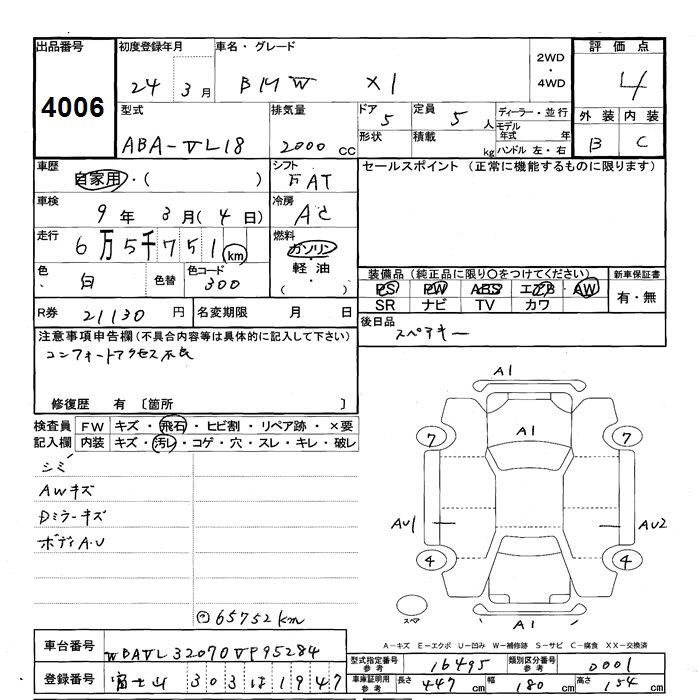 出品番号
4006
初度登録年月
24 3月
車名・グレード
BMW X1
2WD
・
4WD
評価点
4
外装 内装
B C
型式
ABA-VL18
排気量
2000 CC
ドア 5
定員 5 人
形状 積載 kg
ディーラー・並行
モデル年式 年
ハンドル 左・右
車歴
自家用・( )
シフト
FAT
セールスポイント (正常に機能するものに限ります)
車検
9年 3月(4日)
冷房
AC
走行
6万5千751km
燃料
ガソリン
軽油
( )
色 白 色替
色コード
300
装備品(純正品に限り〇をつけてください)
PS PW ABS エアB AW
SR ナビ TV カワ
新車保証書
有・無
R券 21130円
名変期限 月 日
後日品
スペアキー
注意事項申告欄(不具合内容等は具体的に記入して下さい)
コンフォートアクセス不良
修復歴 有 〔箇所 〕
検査員記入欄
FW キズ・飛石・ヒビ割・リペア跡・×要
内装 キズ・汚レ・コゲ・穴・スレ・キレ・破レ
シミ
AWキズ
Dミラーキズ
ボディA.U
65752km
A1
A1
7 7
AU1 AU2
4 4
スペア
A1
A-キズ E-エクボ U-凹み W-補修跡 S-サビ C-腐食 XX-交換済
車台番号
WBAVL32070VP95284
型式指定番号 参考
16495
類別区分番号 参考
0001
登録番号
富士山 303 は 1947
車庫証明用 参考
長さ 447cm 幅 180cm 高さ 154cm